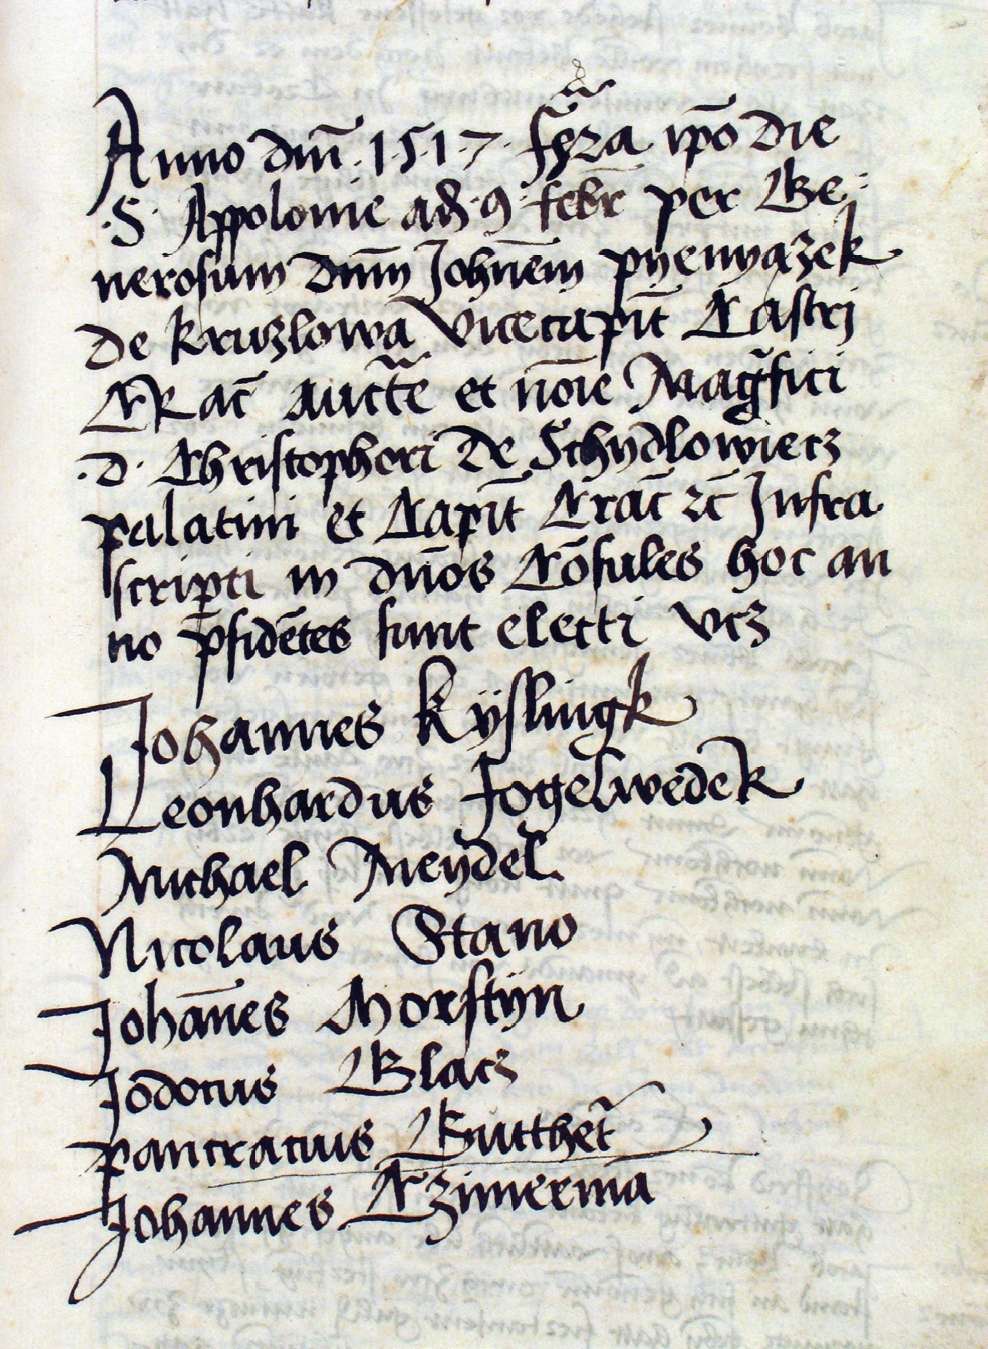 Anno dm̄ 1517 fer̃ia 2a ip̄o die
S Appolonie ad 9 febr̄ per Ge
nerosum dnm̄ Johnēm pyenyązek
de kruzlowa Vicecapit̄ Castrj
CRac̄ auctt̄e et noīe Mag̃fici
d Christophori de Schydlowiecz
palatini et Capit̄ Crac̄ ꝛc̄ Infra
scripti in dn̄os Cōsules hoc an
no p̄sidētes sunt electi vcz
Johannes kyslingk
Leonhardus Fogelwedek
Michael Meydel
Nicolaus Stano
Johān̄es Morstyn
Jodocus Glacz
pancracius Gutthet̄
Johannes Czimermā